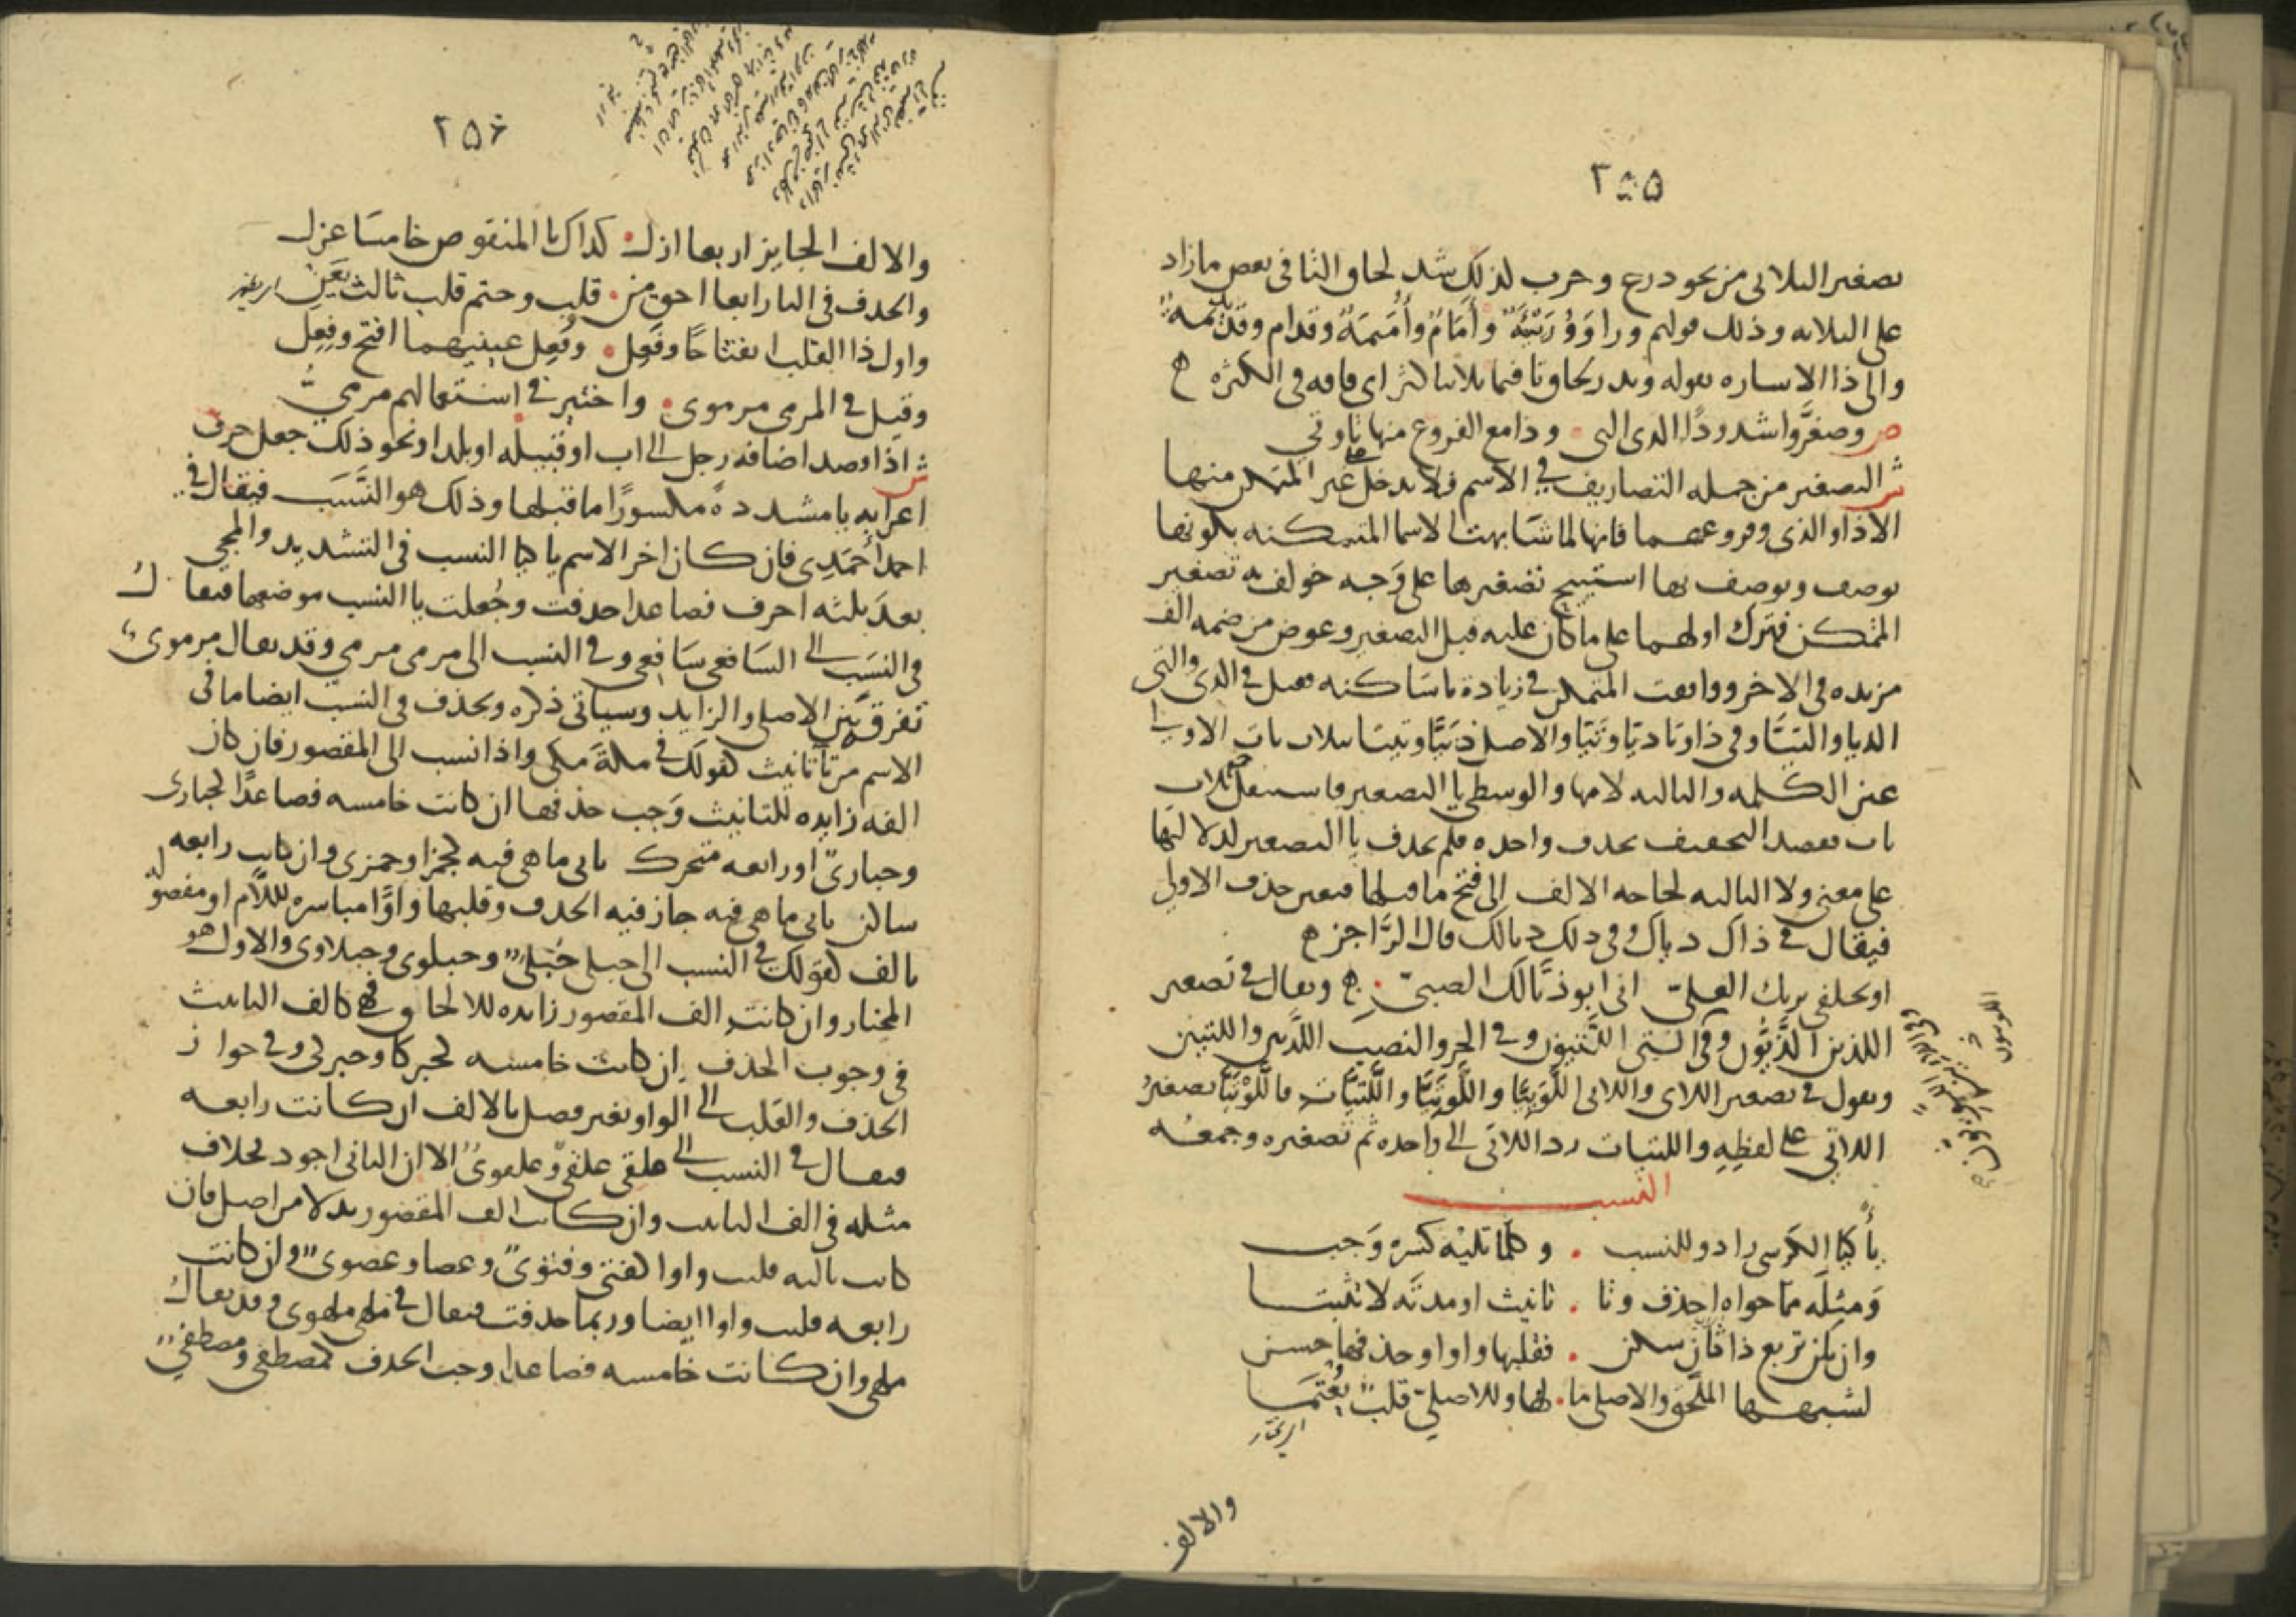 ٢٥٥
تصغير الثلاثي من نحو درع وحرب لذلك شذ لحاق التا في بعض ما زاد
على الثلاثه وذلك قولهم ورا وَوُرَيّئَةٌ وأَمَامٌ وأُمَيِّمَةٌ وقدام وقُدَيْدِيمَة
والى ذا الاساره بقوله وندر لحاق تا فيما ثلاثيا كثر اى فاقه في الكثره ه
ص وصغَّروا شذوذًا الذي التي . وذا مع الفروع منها تا وتي
ش التصغير من جمله التصاريف في الاسم فلا يدخل غير المتمكن منها
الا ذا والذي وفروعهما فانها لما شَابهت الاسما المتمكنه بكونها
توصف ويوصف بها استبيح تصغيرها على وَجه خولف به تصغير
المتمكن فترك اولهما على ما كان عليه قبل التصغير وعوض من ضمه الف
مزيده في الاخر ووافقت المتمكن في زيادة يا سَاكنه فقيل في الذي والتي
اللذيا واللتيَّا وفي ذا وتا ذيَّا وتَيَّا والاصل ذَيَيَّا وتَيَيَّا بثلاث ياات الاولى
عين الكلمه والثالثه لامها والوسطى يا التصغير فاستثقل ثلاث
ياات فقصد التخفيف بحذف واحده فلم تحذف يا التصغير لدلالتها
على معنى ولا الثالثه لحاجه الالف الى فتح ما قبلها فتعين حذف الاولى
فيقال في ذاك ذياك وفي ذلك ذيالك قال الرَّاجز ه
او تحلفي بربك العليّ . اني ابو ذيَّالك الصبيّ . ه ويقال في تصغير
اللذين اللَّذَيُّون وفي اللتين اللَّتيون وفي الجر والنصب اللَّذيين واللتيين
ونقول في تصغير اللاى واللاتي اللَّويَيَّا واللَّويَتَيَّا واللُّتَيَّات فاللَّوَيْتَيَّا تصغيرُ
اللاتي على لفظه واللتيات رد اللاتى الى واحده ثم تصغيره وجمعُه
النسب
يأ كيا الكرسى زادو للنسب . وكلما تليه كسره وَجب
وَمثلَه مما حواه احذف وتا . تانيث او مدتَه لا تثبتا
وان تكن تربع ذا ثانٍ سكن . فقلبها واوا وحذفها حسن
لشبهها الملحق والاصلى ما . لها وللاصليّ قلبٌ يُعْتَمَا
والالف
٢٥۶
والالف الجايز اربعا ازل . كذاك يا المنقوص خامسَا عزل
والحذف في اليا رابعا احق من . قلب وحتم قلب ثالث يَعِنْ
واول ذا القلب انفتاحًا وفَعِل . وفُعِل عينهما افتح وفِعِل
وقيل في المرمى مرموى . واختير في استعمالهم مرميُّ
ش اذا قصد اضافه رجل الى اب او قبيله او بلد او نحو ذلك جعل حرف
اعرابه يا مشدده مكسورًا ما قبلها وذلك هو النَّسَب فيقال في
احمد أَحمَدِى فان كان اخر الاسم يا كيا النسب في التشديد والمجي
بعدَ ثلثه احرف فصاعدا حذفت وجُعلت يا النسب موضعها فيقال
في النسَب الى الشافعى شَافعى وفي النسب الى مرمى مرمى وقد يقال مرموىٌ
تفرقه بين الاصلى والزايد وسياتى ذكره ويحذف في النسب ايضا ما في
الاسم من تآ تانيث كقولك في مكة مكى واذا نسب الى المقصور فان كان
الفه زايده للتانيث وَجب حذفها ان كانت خامسه فصاعدًا كحبارى
وحبارىّ او رابعه متحرك ثاني ما هى فيه كجمزا وجمزى وان كانت رابعه
ساكن ثانى ما هى فيه جاز فيه الحذف وقلبها واوًا مباسره للام او مفصوله
بالف كقولك في النسب الى حبلى حُبْلىٌّ وحبلوى وحبلاوى والاول هو
المختار وان كانت الف المقصور زايده للالحاق فهى كالف التانيث
في وجوب الحذف ان كانت خامسه كحبركا وحبركى وفي جواز
الحذف والقلب الى الواو بغير فصل بالالف ان كانت رابعه
فيقال في النسب الى علقى علقىٌّ وعلقوىٌ الا ان الثانى اجود بخلاف
مثله في الف التانيث وان كانت الف المقصور بدلا من اصل فان
كانت ثالثه قلبت واوا كفتى وفتوىٌ وعصا وعصوىٌ وان كانت
رابعه قلبت واوا ايضا وربما حذفت فيقال في ملهى ملهوى وقد يقال
ملهى وان كانت خامسه فصاعدا وجب الحذف كمصطفى ومصطفىٌ